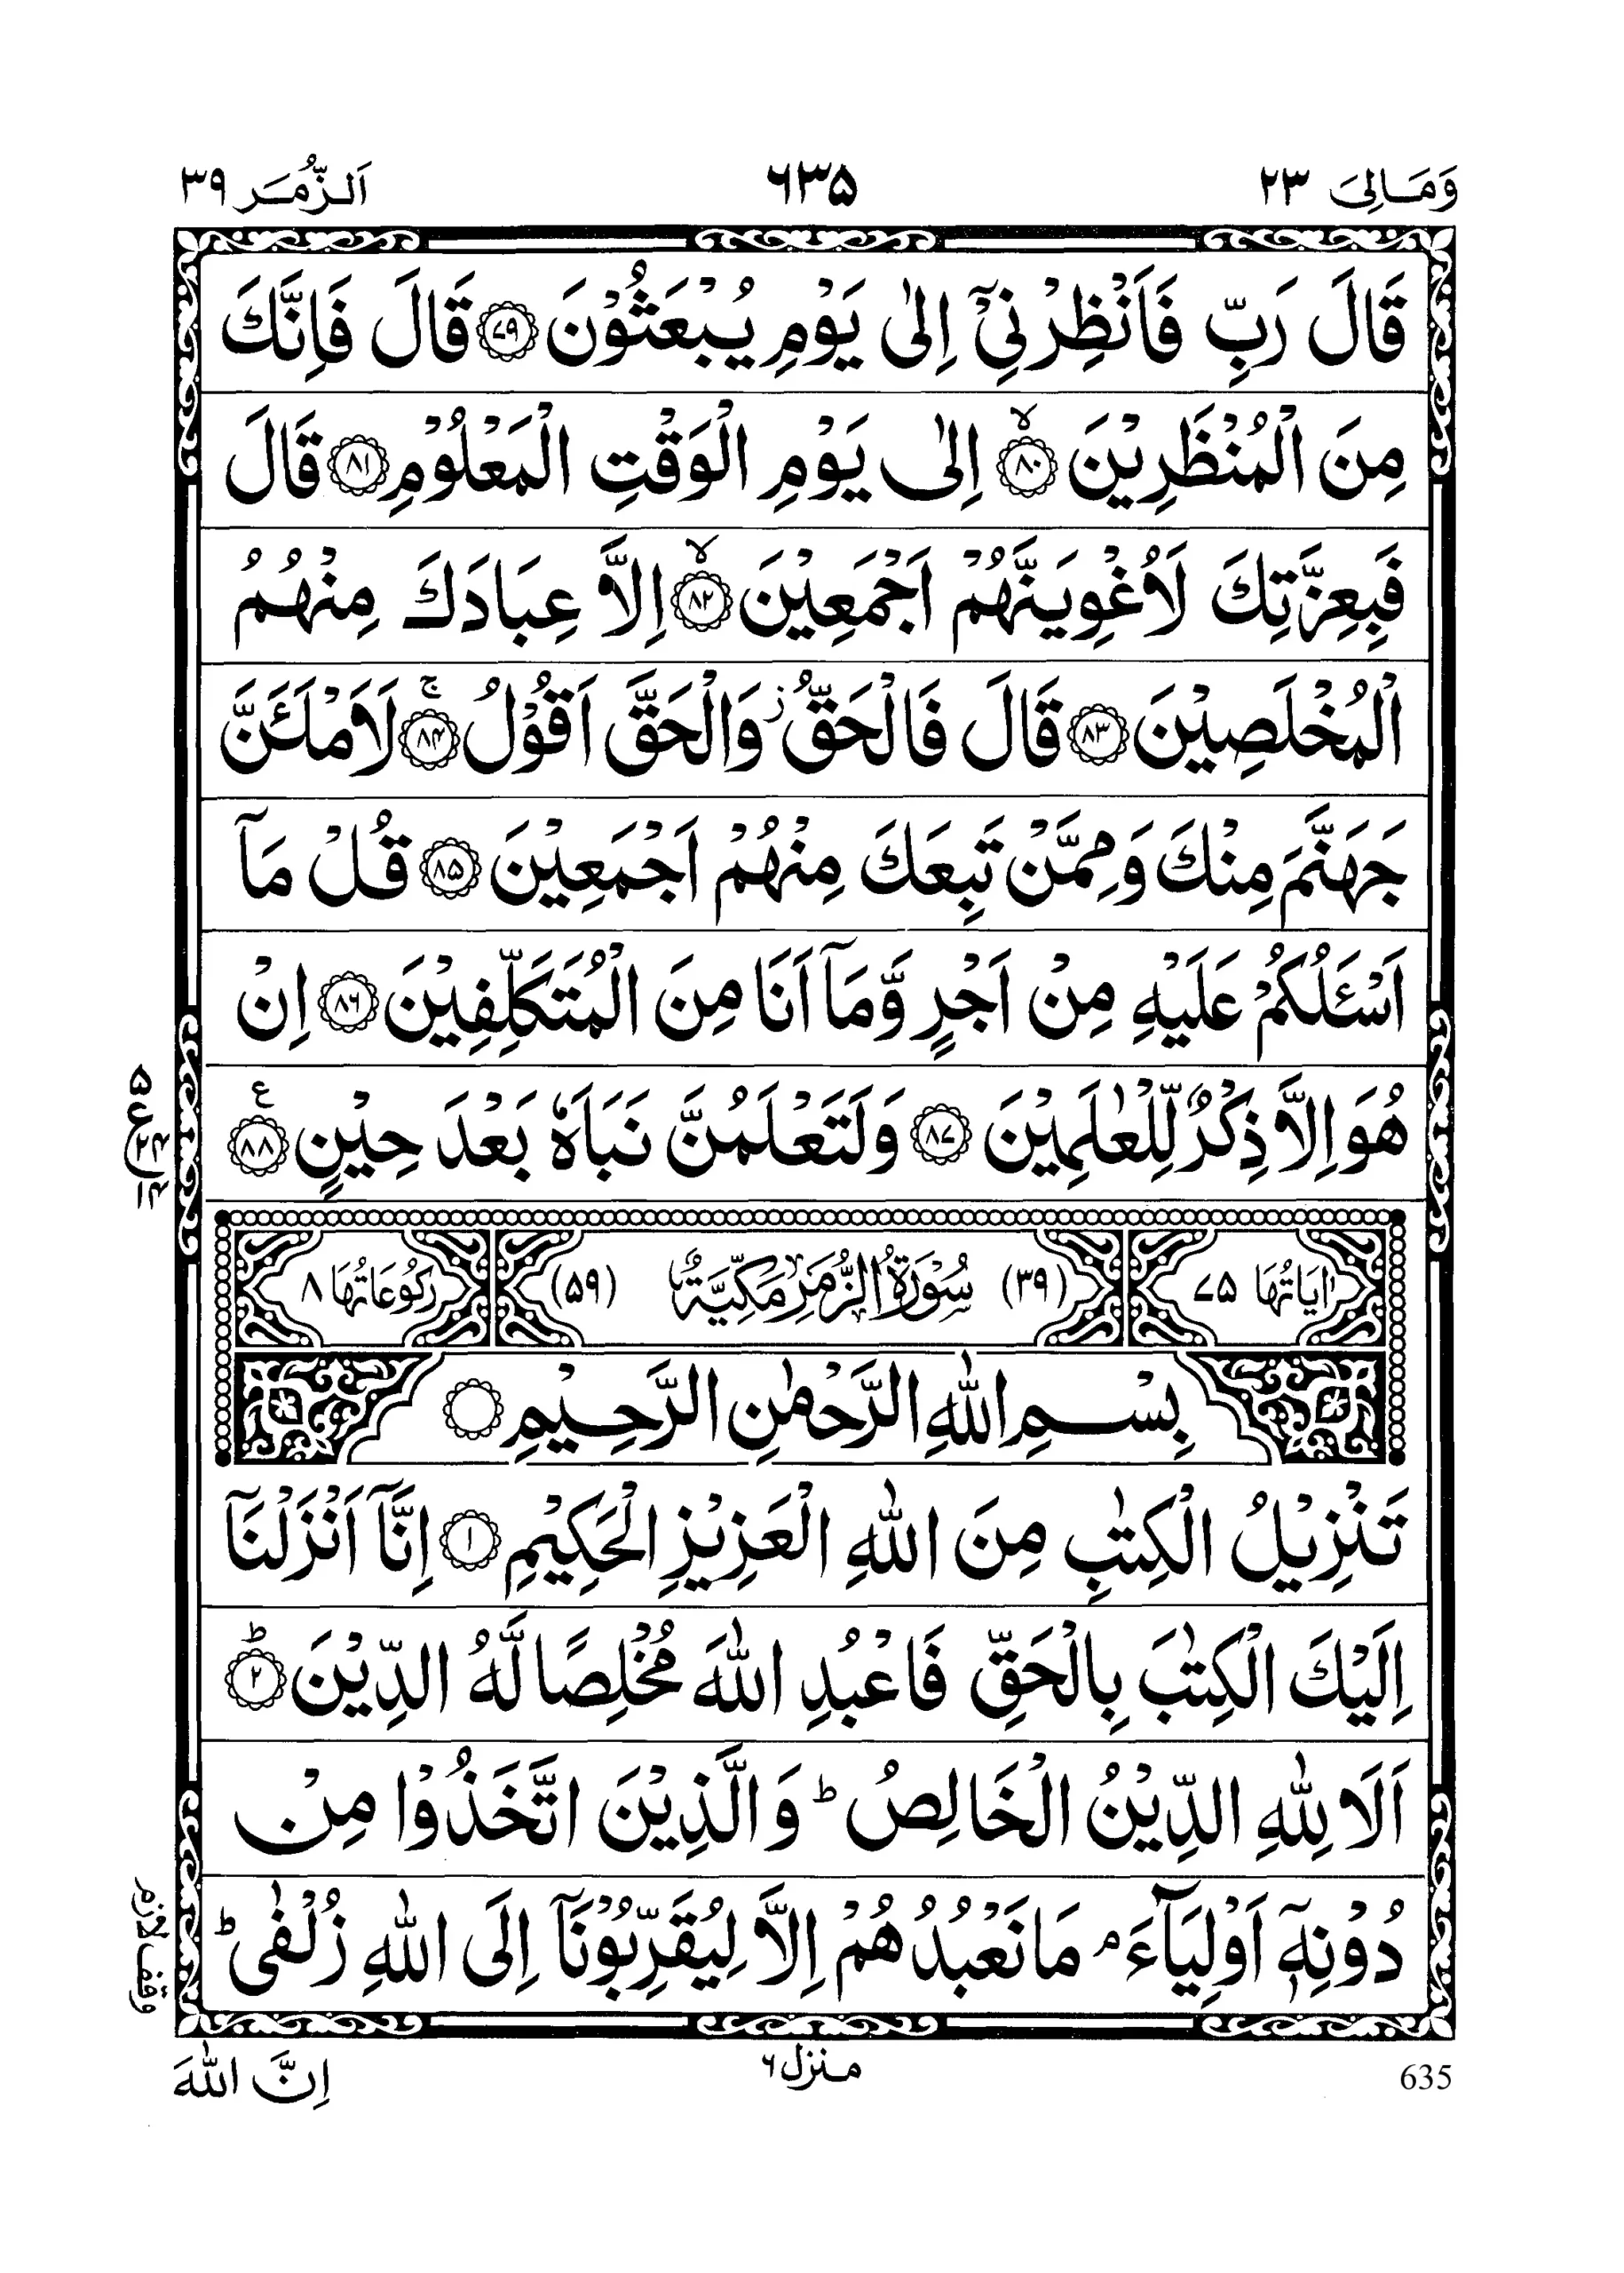 وَمَالِیَ ۲۳
۶۳۵
اَلزُّمَر ۳۹
قَالَ رَبِّ فَاَنْظِرْنِیْۤ اِلٰی یَوْمِ یُبْعَثُوْنَ ﴿۷۹﴾ قَالَ فَاِنَّكَ
مِنَ الْمُنْظَرِیْنَ ﴿۸۰﴾ۙ اِلٰی یَوْمِ الْوَقْتِ الْمَعْلُوْمِ ﴿۸۱﴾ قَالَ
فَبِعِزَّتِكَ لَاُغْوِیَنَّهُمْ اَجْمَعِیْنَ ﴿۸۲﴾ۙ اِلَّا عِبَادَكَ مِنْهُمُ
الْمُخْلَصِیْنَ ﴿۸۳﴾ قَالَ فَالْحَقُّ ؗ وَالْحَقَّ اَقُوْلُ ﴿۸۴﴾ۚ لَاَمْلَـَٔنَّ
جَهَنَّمَ مِنْكَ وَمِمَّنْ تَبِعَكَ مِنْهُمْ اَجْمَعِیْنَ ﴿۸۵﴾ قُلْ مَاۤ
اَسْـَٔلُكُمْ عَلَیْهِ مِنْ اَجْرٍ وَّمَاۤ اَنَا مِنَ الْمُتَكَلِّفِیْنَ ﴿۸۶﴾ اِنْ
هُوَ اِلَّا ذِكْرٌ لِّلْعٰلَمِیْنَ ﴿۸۷﴾ وَلَتَعْلَمُنَّ نَبَاَهٗ بَعْدَ حِیْنٍ ﴿۸۸﴾ ع
اٰیَاتُهَا ۷۵
(۳۹) سُوْرَةُ الزُّمَرِ مَكِّیَّةٌ (۵۹)
رُكُوْعَاتُهَا ۸
بِسْمِ اللّٰهِ الرَّحْمٰنِ الرَّحِیْمِ
تَنْزِیْلُ الْكِتٰبِ مِنَ اللّٰهِ الْعَزِیْزِ الْحَكِیْمِ ﴿۱﴾ اِنَّاۤ اَنْزَلْنَاۤ
اِلَیْكَ الْكِتٰبَ بِالْحَقِّ فَاعْبُدِ اللّٰهَ مُخْلِصًا لَّهُ الدِّیْنَ ﴿۲﴾ؕ
اَلَا لِلّٰهِ الدِّیْنُ الْخَالِصُ ؕ وَالَّذِیْنَ اتَّخَذُوْا مِنْ
دُوْنِهٖۤ اَوْلِیَآءَ ۘ مَا نَعْبُدُهُمْ اِلَّا لِیُقَرِّبُوْنَاۤ اِلَی اللّٰهِ زُلْفٰی ؕ
وقف لازم
منزل ۶
اِنَّ اللّٰهَ
635